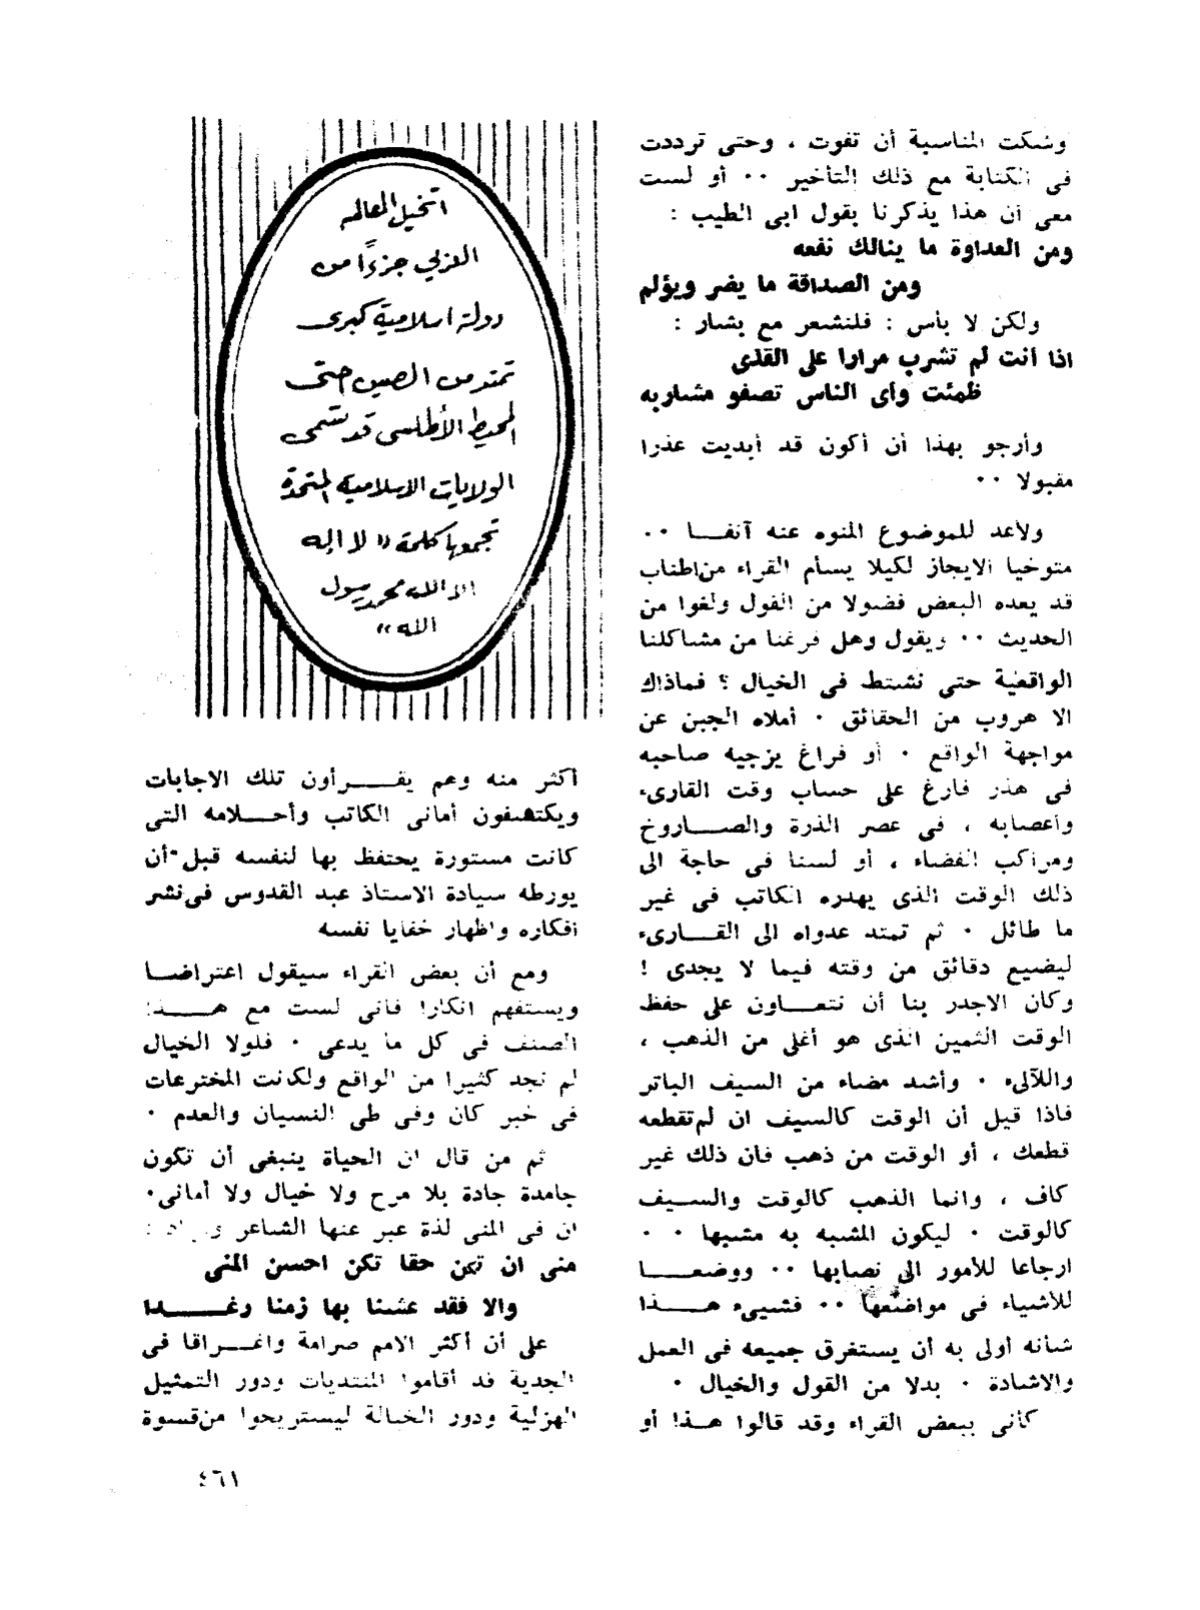 وشكت المناسبة أن تفوت ، وحتى ترددت
فى الكتابة مع ذلك التأخير ٠٠ أو لست
معى أن هذا يذكرنا بقول ابى الطيب :
ومن العداوة ما ينالك نفعه
ومن الصداقة ما يضر ويؤلم
ولكن لا بأس : فلنشعر مع بشار :
اذا أنت لم تشرب مرارا على القذى
ظمئت وأى الناس تصفو مشاربه
وأرجو بهذا أن أكون قد أبديت عذرا
مقبولا ٠٠
ولأعد للموضوع المنوه عنه آنفـــا ٠٠
متوخيا الايجاز لكيلا يسأم القراء من اطناب
قد يعده البعض فضولا من القول ولغوا من
الحديث ٠٠ ويقول وهل فرغنا من مشاكلنا
الواقعية حتى نشتط فى الخيال ؟ فماذاك
الا هروب من الحقائق ٠ أملاه الجبن عن
مواجهة الواقع ٠ أو فراغ يزجيه صاحبه
فى هذر فارغ على حساب وقت القارىء
وأعصابه ، فى عصر الذرة والصـــاروخ
ومراكب الفضاء ، أو لسنا فى حاجة الى
ذلك الوقت الذى يهدره الكاتب فى غير
ما طائل ٠ ثم تمتد عدواه الى القـــارىء
ليضيع دقائق من وقته فيما لا يجدى !
وكان الاجدر بنا أن نتعـــاون على حفظ
الوقت الثمين الذى هو أغلى من الذهب ،
واللآلىء ٠ وأشد مضاء من السيف الباتر
فاذا قيل أن الوقت كالسيف ان لم تقطعه
قطعك ، أو الوقت من ذهب فان ذلك غير
كاف ، وانما الذهب كالوقت والســيف
كالوقت ٠ ليكون المشبه به مشبها ٠ ٠
ارجاعا للأمور الى نصابها ٠٠ ووضعـــا
للأشياء فى مواضعها ٠٠ فشيىء هـــذا
شانه أولى به أن يستغرق جميعه فى العمل
والاشادة ٠ بدلا من القول والخيال ٠
كأنى ببعض القراء وقد قالوا هــذا أو
أتخيل العالم
العربي جزءاً من
دولة اسلامية كبرى
تمتد من الصين حتى
المحيط الأطلسى قد تسمى
الولايات الاسلامية المتحدة
تجمعها كلمة « لا اله
الا الله محمد رسول
الله »
أكثر منه وهم يقـــرأون تلك الاجابات
ويكتشفون أمانى الكاتب وأحـــلامه التى
كانت مستورة يحتفظ بها لنفسه قبل أن
يورطه سيادة الاستاذ عبد القدوس فى نشر
أفكاره واظهار خفايا نفسه
ومع أن بعض القراء سيقول اعتراضـا
ويستفهم انكارا فانى لست مع هـــذا
الصنف فى كل ما يدعى ٠ فلولا الخيال
لم نجد كثيرا من الواقع ولكانت المخترعات
فى خبر كان وفى طى النسيان والعدم ٠
ثم من قال ان الحياة ينبغى أن تكون
جامدة جادة بلا مرح ولا خيال ولا أمانى٠
ان فى المنى لذة عبر عنها الشاعر :
منى ان تكن حقا تكن احسن المنى
والا فقد عشنا بها زمنا رغـــدا
على أن أكثر الامم صرامة واغـــراقا فى
الجدية قد أقاموا المنتديات ودور التمثيل
الهزلية ودور الخيالة ليستريحوا من قسوة
٤٦١